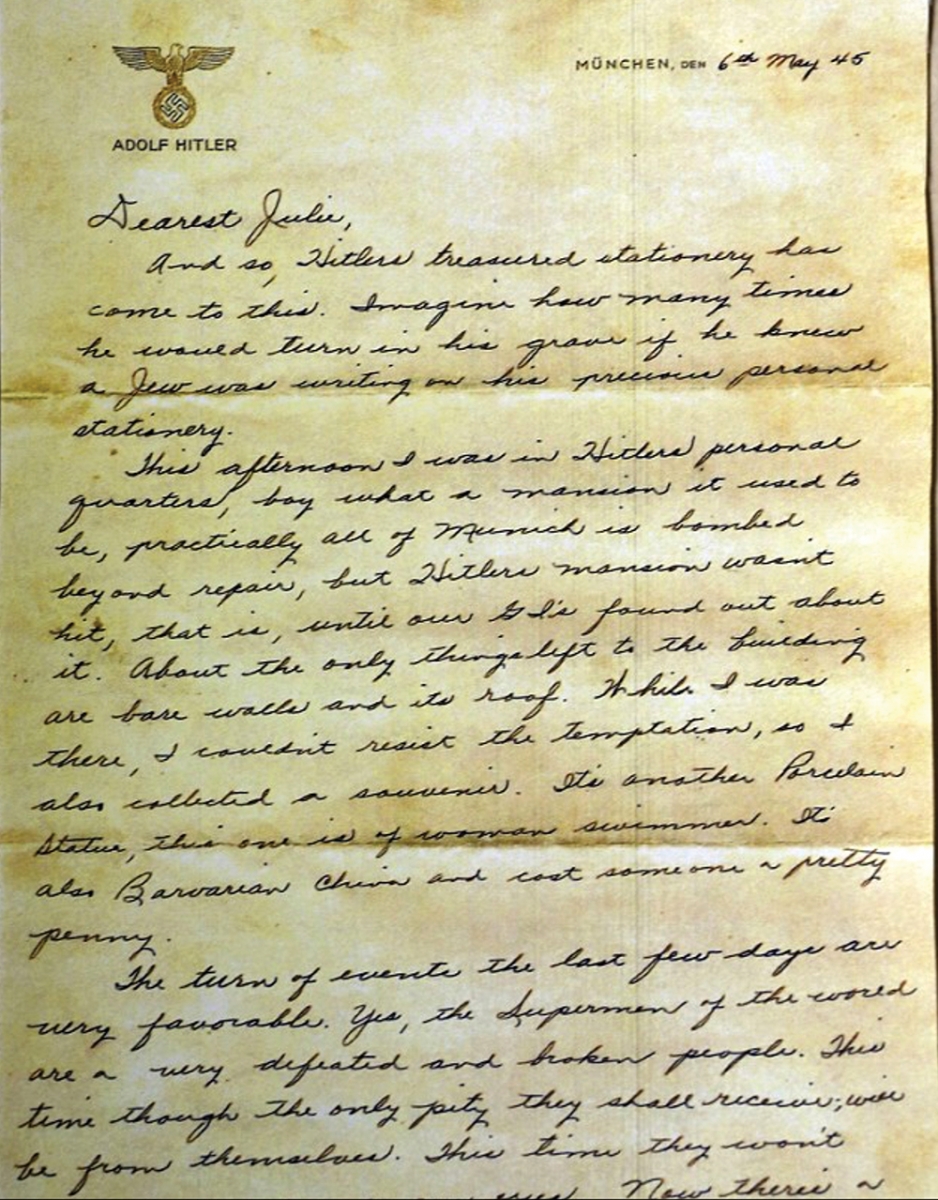 MÜNCHEN, DEN 6th May 45
ADOLF HITLER
Dearest Julie,
And so, Hitlers treasured stationery has
come to this. Imagine how many times
he would turn in his grave if he knew
a Jew was writing on his precious personal
stationery.
This afternoon I was in Hitlers personal
quarters, boy what a mansion it used to
be, practically all of Munich is bombed
beyond repair, but Hitlers mansion wasnt
hit, that is, until our G I's found out about
it. About the only things left to the building
are bare walls and its roof. While I was
there, I couldn't resist the temptation, so I
also collected a souvenir. Its another Porcelain
Statue, this one is of woman swimmer. Its
also Barvarian China and cost someone a pretty
penny.
The turn of events the last few days are
very favorable. Yes, the Supermen of the world
are a very defeated and broken people. This
time though the only pity they shall receive, will
be from themselves. This time they won't
Now there's a